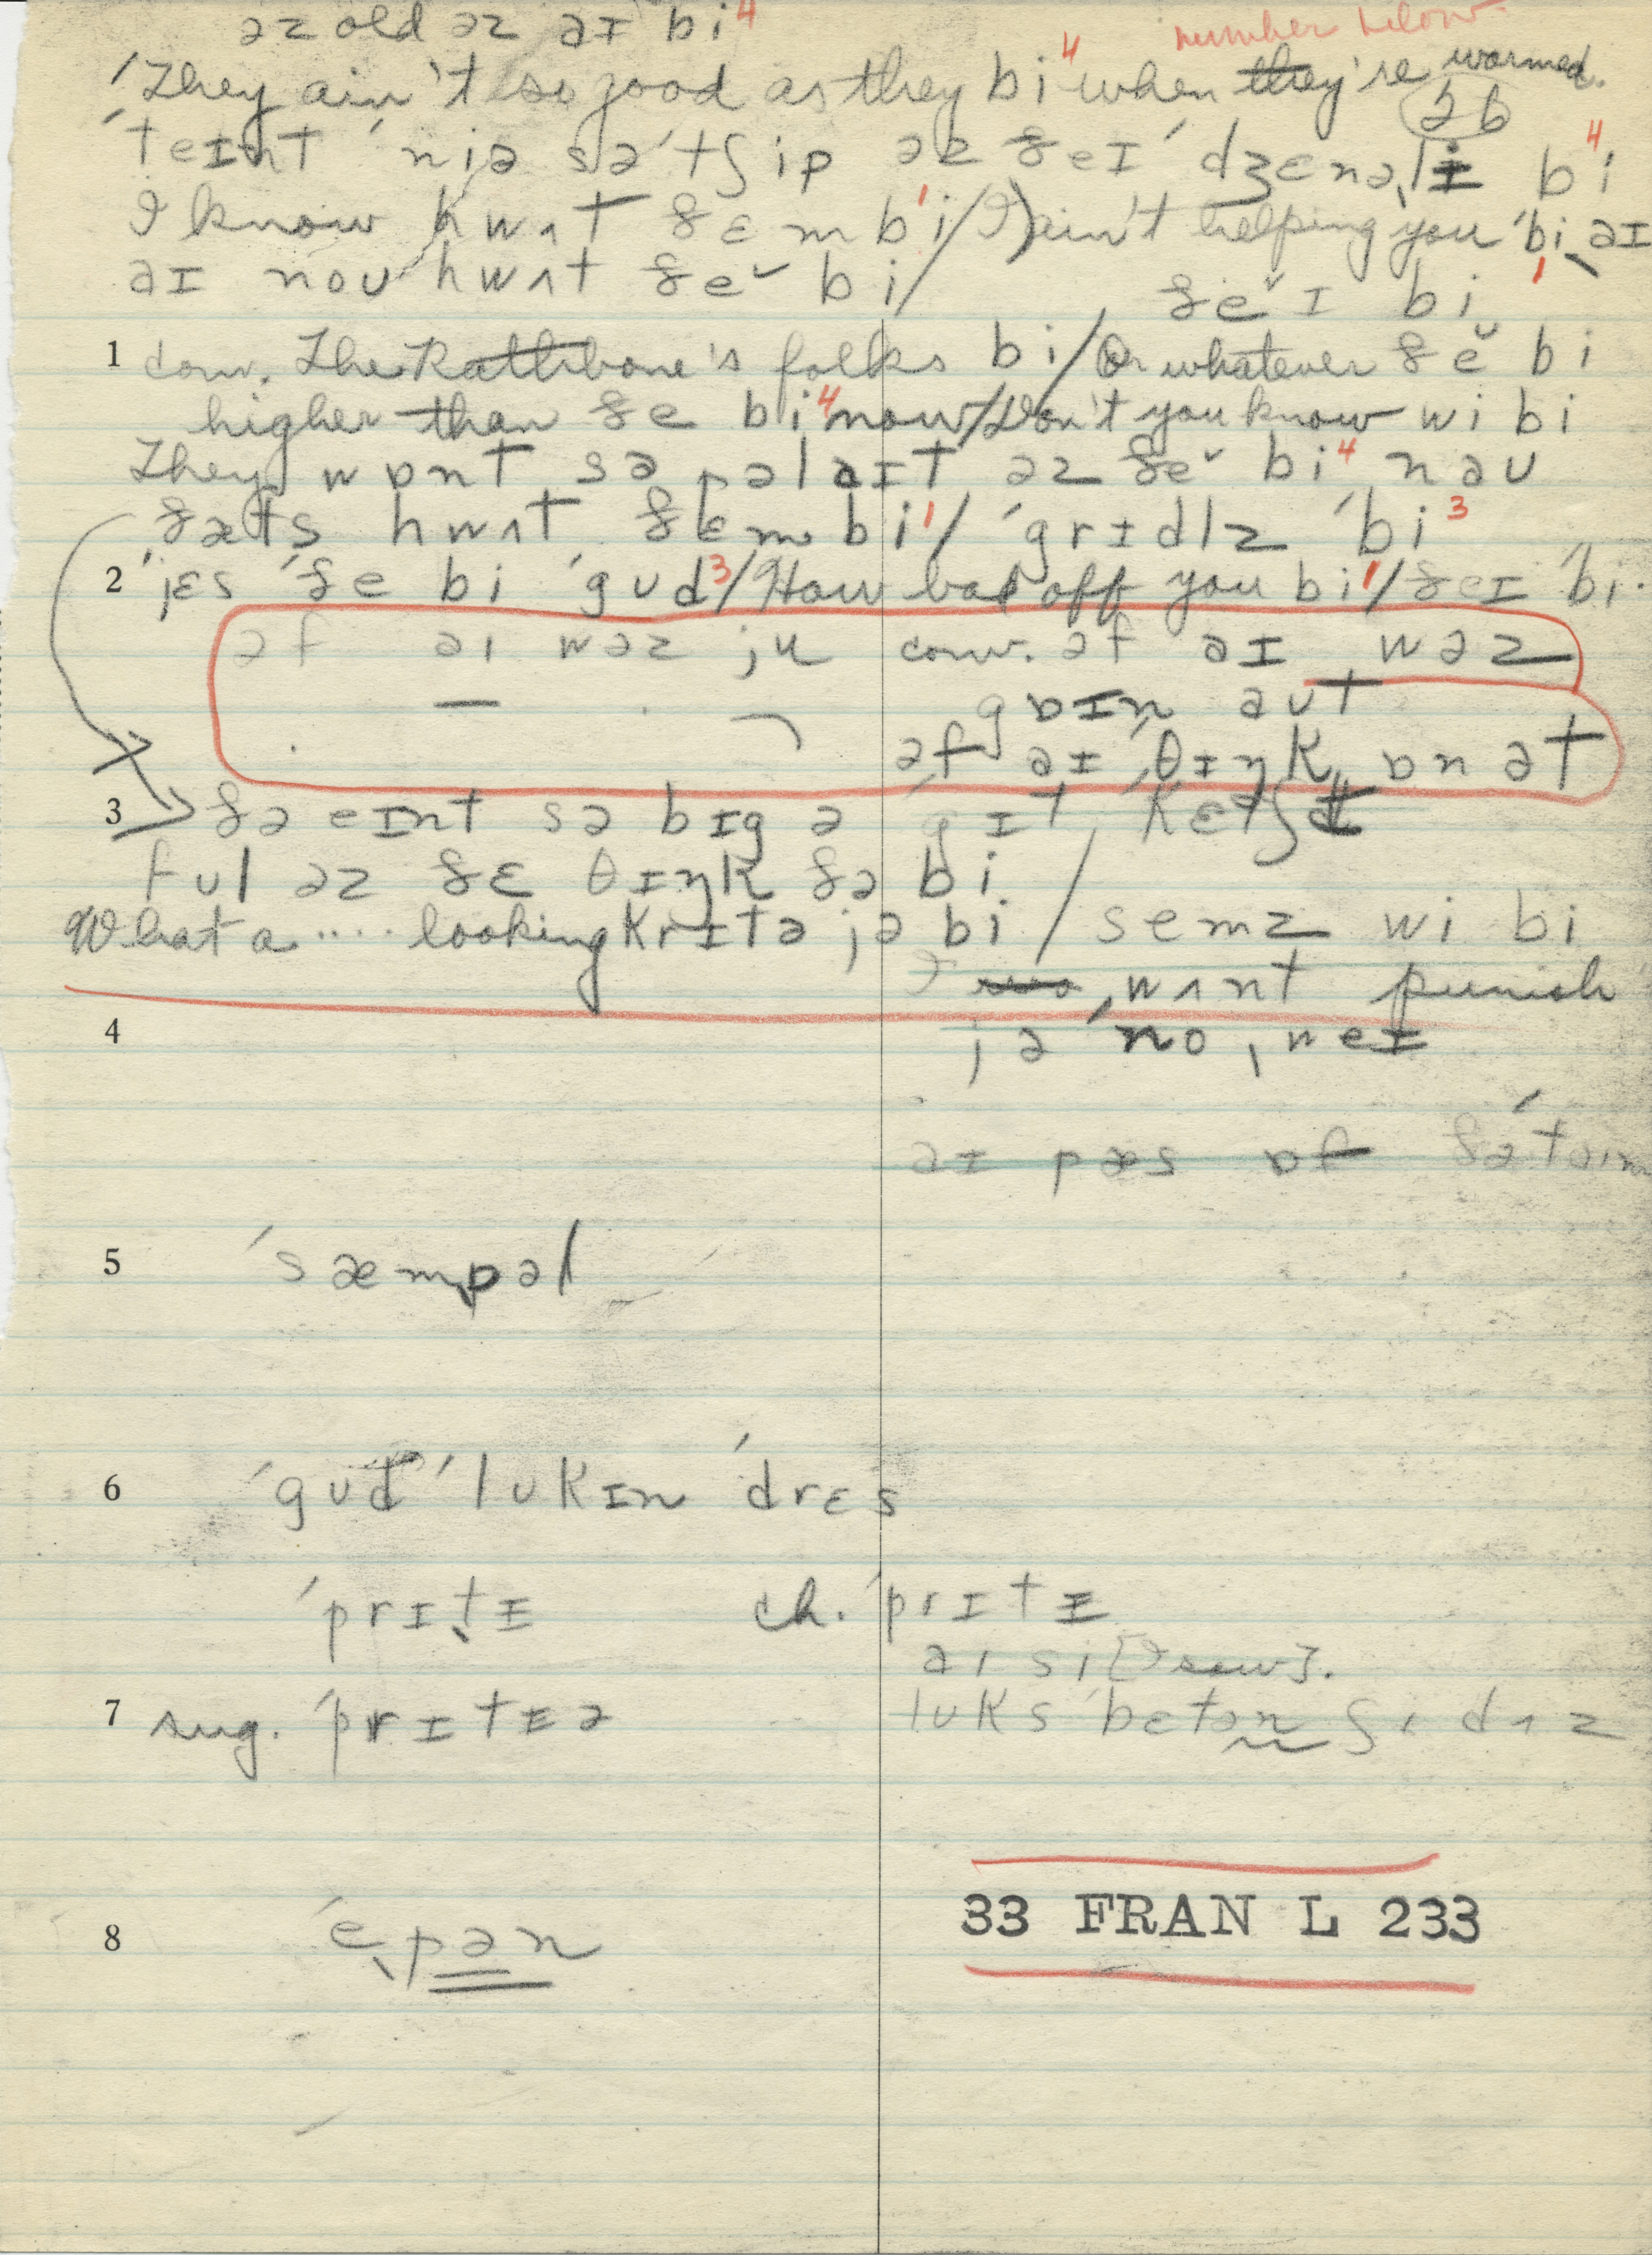 əz old əz aɪ bi⁴
number below
'They ain't so good as they bi⁴ when they're warmed.
26
'teɪnt 'niə sə 'tʃip əz ðeɪ 'dʒɛnəlɪ bi⁴
I know hwʌt ðɛm bi¹ / I ain't helping you 'bi¹ aɪ
aɪ noʊ hwʌt ðĕ bi /
ðĕɪ bi
1 conv. The Rathbone's folks bi / Or whatever ðĕ bi
higher than ðe bi⁴ now / Don't you know wi bi
They wɒnt sə pəlaɪt əz ðĕ bi⁴ naʊ
ðæts hwʌt ðɛm bi¹ / 'grɪdlz 'bi³
2 'jɛs 'ðe bi 'gʊd³ / How bad off you bi¹ / ðeɪ 'bi.
əf aɪ wəz ju conv. əf aɪ wəz
gɒɪn aʊt
əf aɪ 'θɪŋk ɒn ət
3 ðə eɪnt sə bɪg ə 'gɪt 'kɛtʃt
fʊl əz ðɛ θɪŋk ðə bi /
What a .... looking krɪtə jə bi / semz wi bi
I wʌnt punish
4 jə 'no, weɪ
aɪ pæs ɒf ðə 'taɪm
5 'sæmpəl
6 'gʊd 'lʊkɪn 'drɛs
'prɪtɪ ch. 'prɪtɪ
aɪ si [I saw].
7 sug. 'prɪtɪə lʊks betən ʃɪ dʌz
33 FRAN L 233
8 'epən